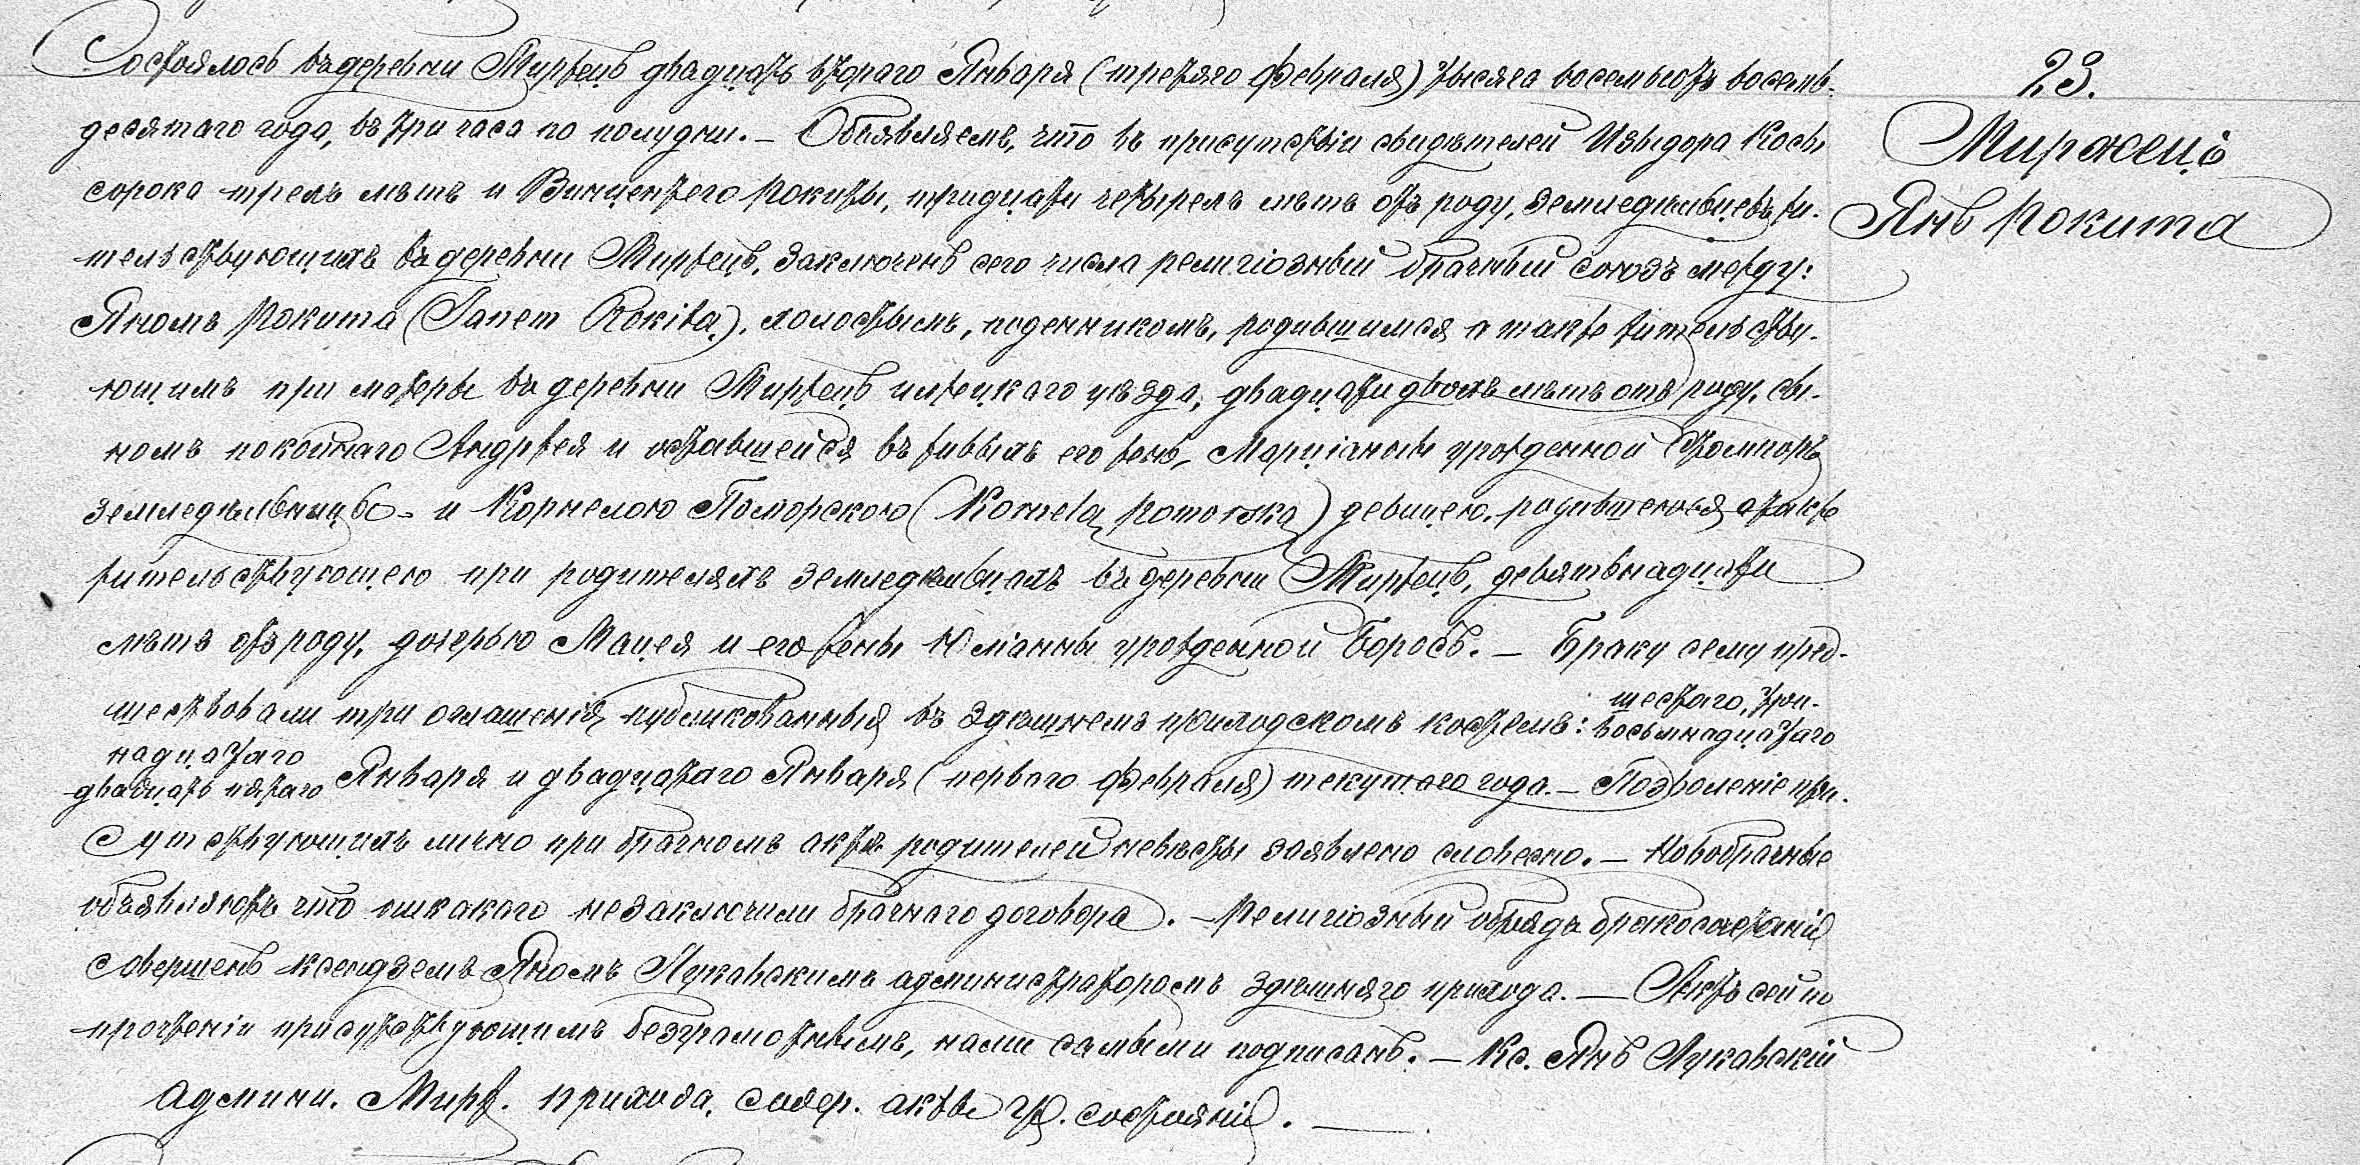 Состоялось въ деревни Миржецъ двадцать втораго Января (третяго Февраля) тысяча восемьсотъ восемь-
десятаго года, въ три часа по полудни. — Объявляемъ, что въ присутствіи свидѣтелей Извидора Косы
сорока трехъ лѣтъ и Винцентего Рокиты, тридцати четырехъ лѣтъ отъ роду, земледѣльцевъ жи-
тельствующихъ въ деревни Миржецъ, заключенъ сего числа религіозный брачный союзъ между:
Яномъ Рокита (Janem Rokita), холостымъ, поденникомъ, родившимся а также жительству-
ющимъ при матеры въ деревни Миржецъ илжецкаго уѣзда, двадцати двохъ лѣтъ отъ роду, сы-
номъ покойнаго Андржея и оставшейся въ живыхъ его жены Марціанны урожденной
земледѣльницы — и Корнелою Поморскою (Kornelą Pomorską) девицею, родившеюся а также
жительствующею при родителяхъ земледѣльцахъ въ деревни Миржецъ, девятьнадцати
лѣтъ отъ роду, дочерью Мацея и его жены Юліанны урожденной Боросъ. — Браку сему пред-
шествовали три оглашенія, публикованныя въ здѣшнемъ приходскомъ костелѣ:
шестаго, три-
восьмнадцатаго
надцатаго
двадцать пятаго Января и двадцатаго Января (перваго Февраля) текущаго года. — Позволеніе при-
сутствующихъ лично при брачномъ актѣ родителей невѣсты заявлено словесно. — Новобрачные
объявляютъ что никакого незаключили брачнаго договора. — Религіозный обрядъ бракосочетанія
совершенъ ксендземъ Яномъ Лукавскимъ администраторомъ здѣшняго прихода. — Актъ сей по
прочтеніи присутствующимъ безграмотнымъ, нами самыми подписанъ. — Кс. Янъ Лукавскій
админи. Мирж. прихода, содер. акты гр. состоянія.
23.
Миржецъ
Янъ Рокита